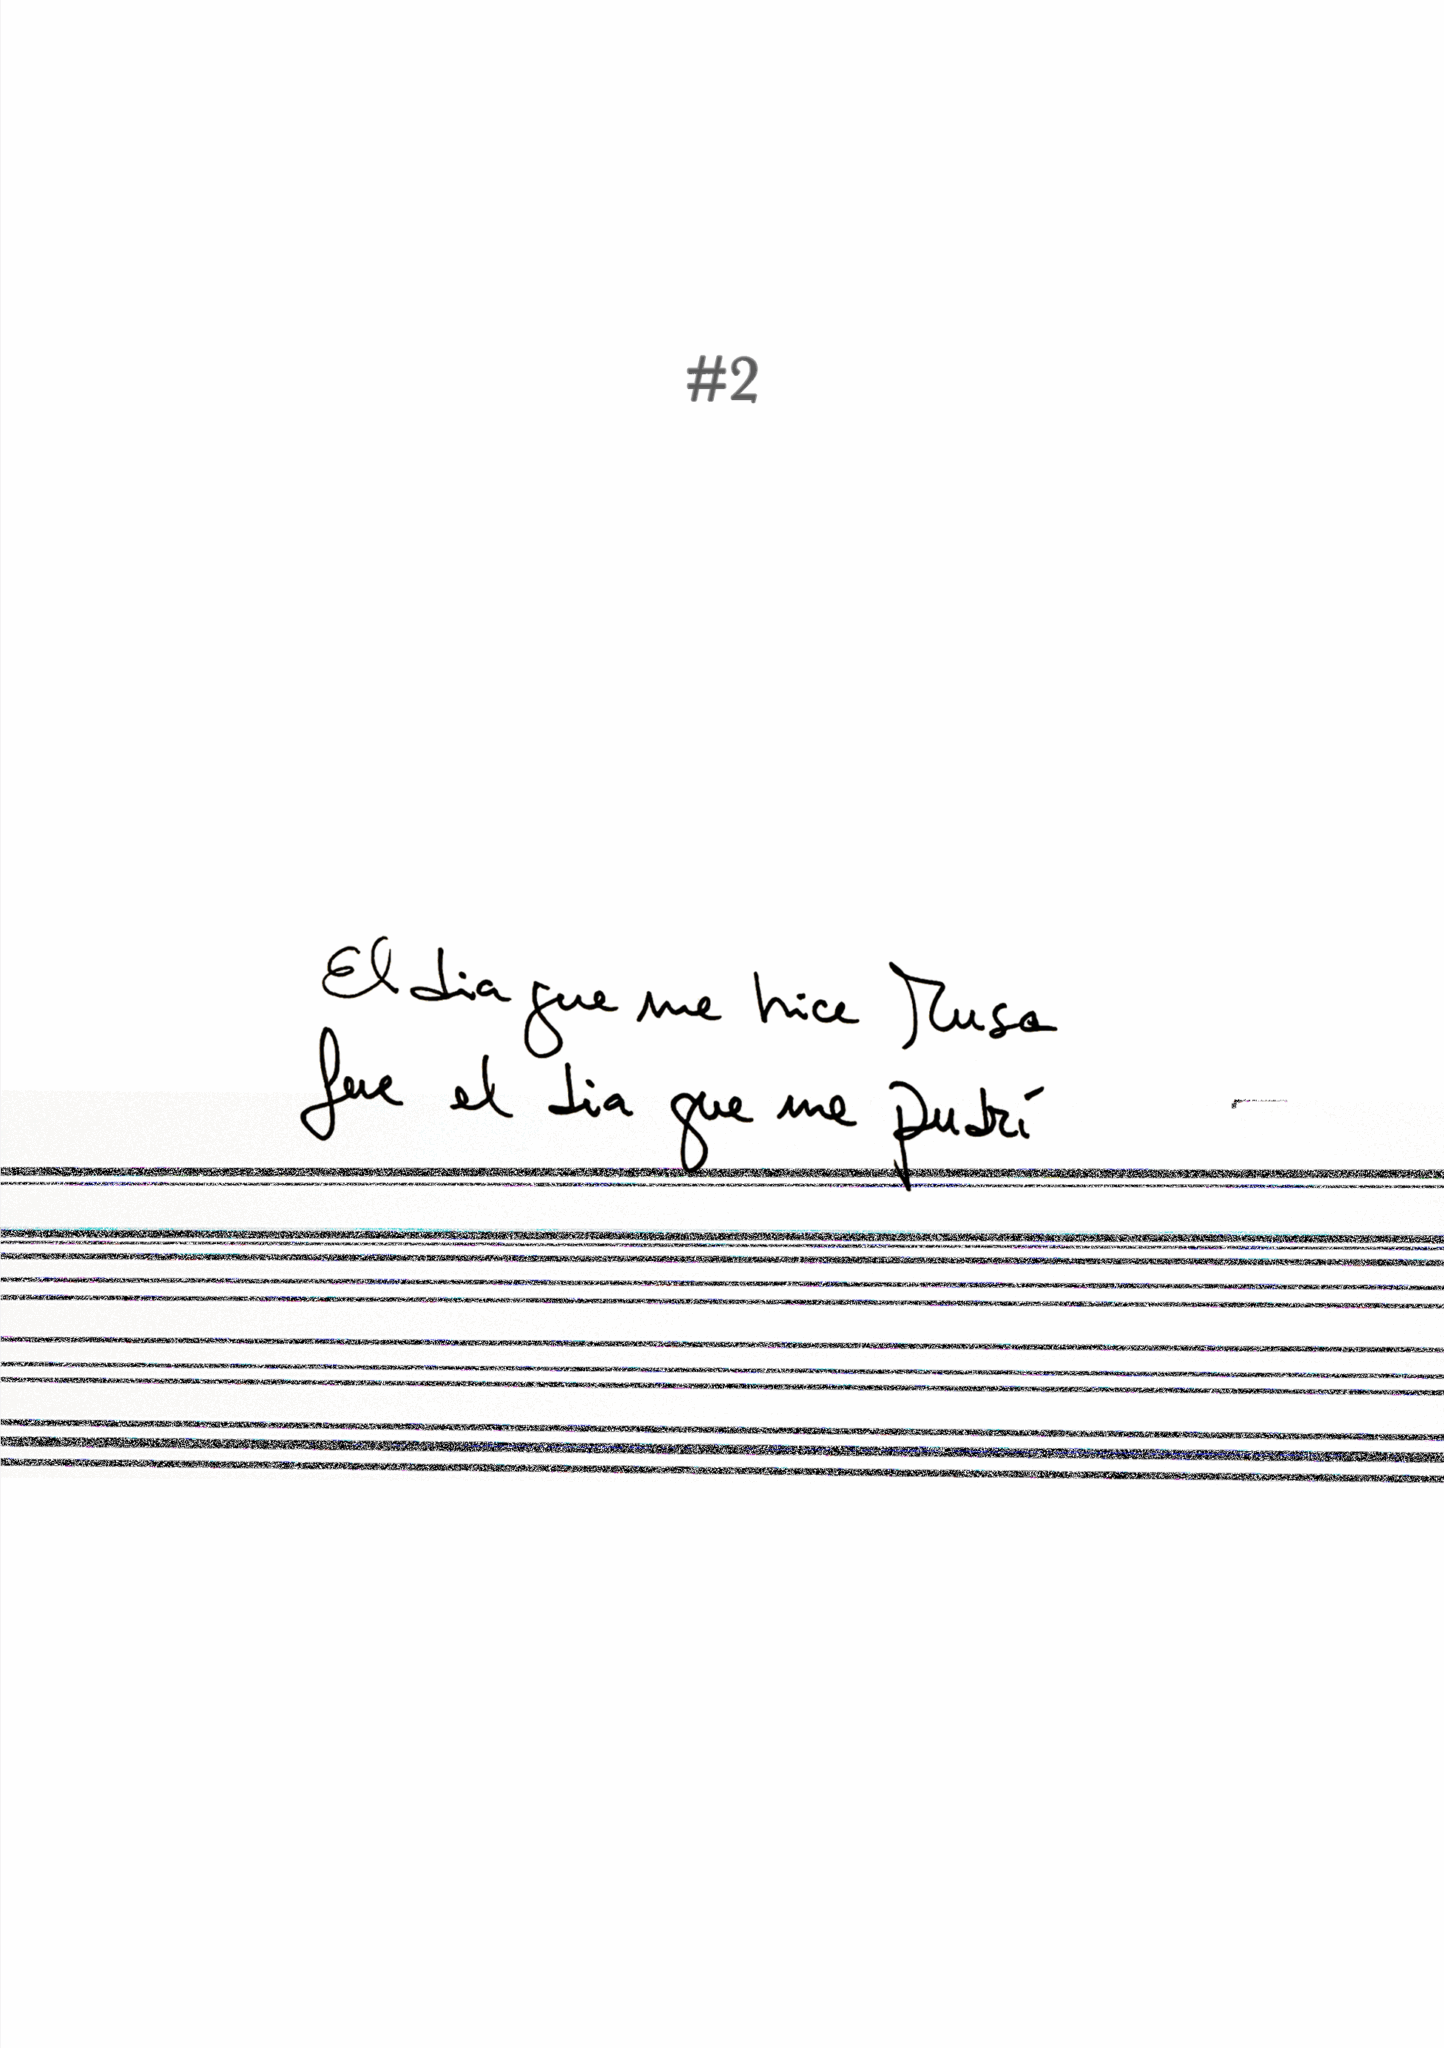 #2
El dia que me hice Musa
fue el dia que me pudrí